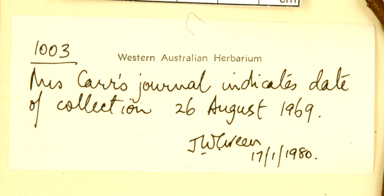 cm
1003
Western Australian Herbarium
Mrs Carr's journal indicates date
of collection 26 August 1969.
JWGreen
17/1/1980.